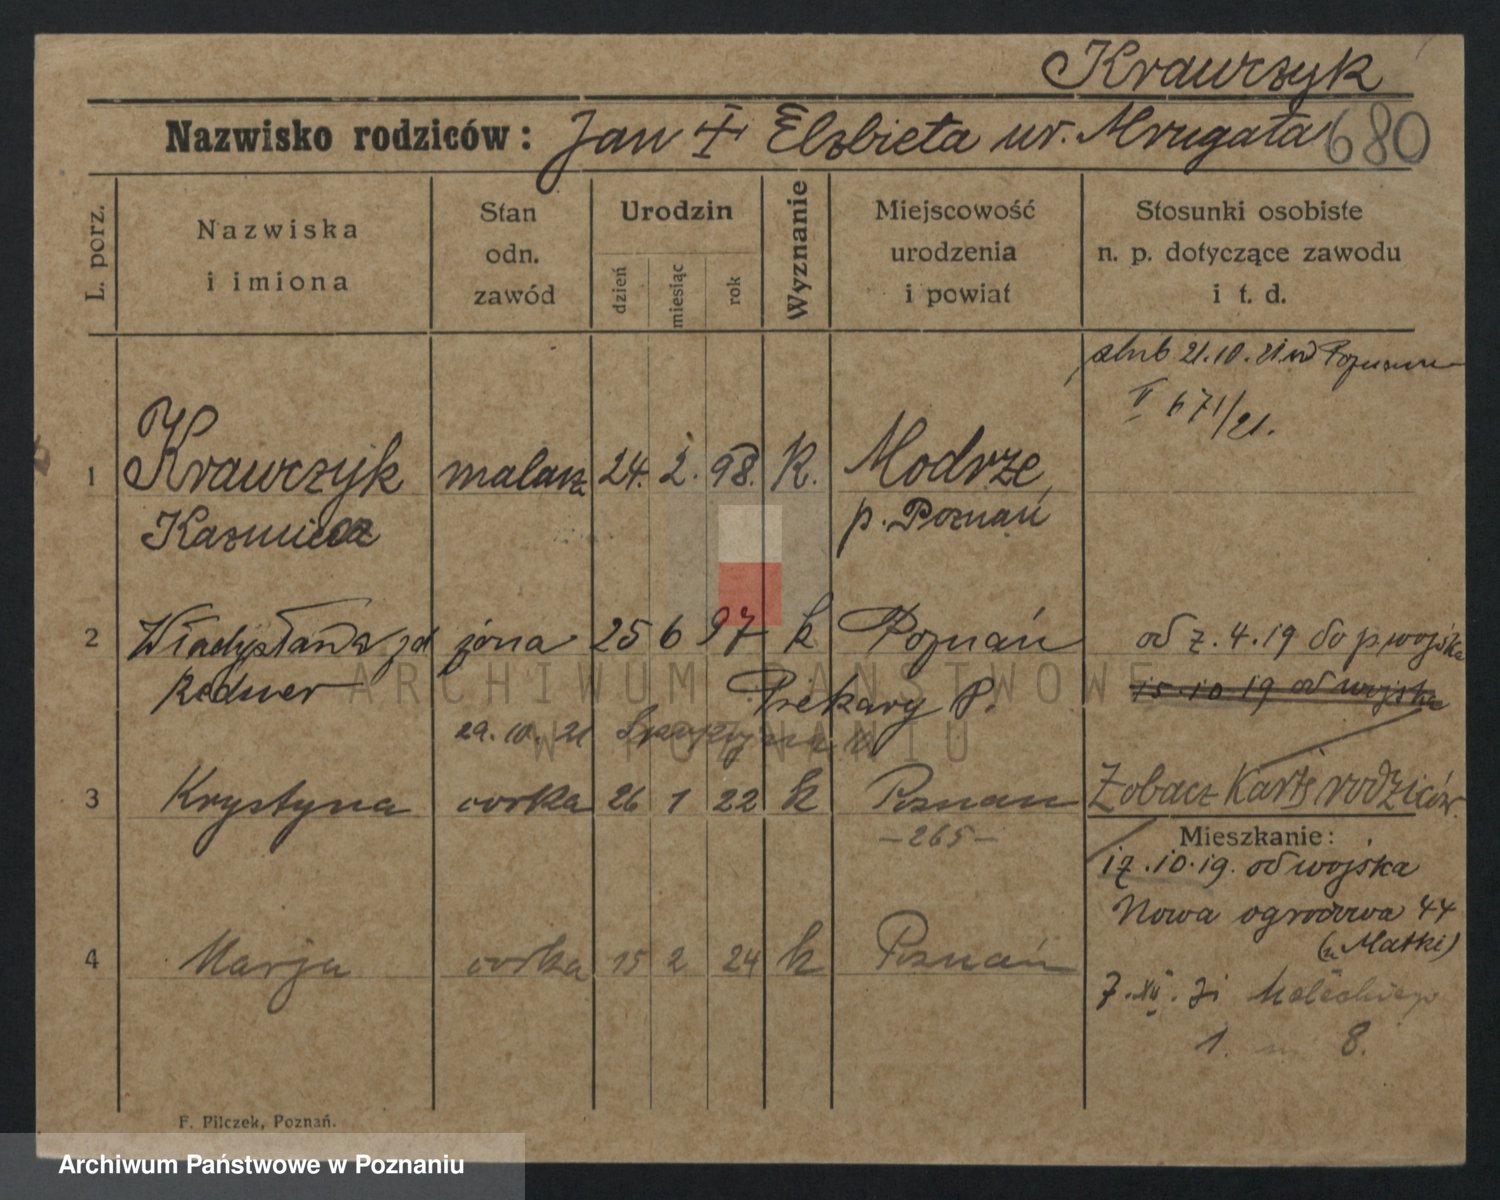 Krawczyk
Nazwisko rodziców: Jan + Elzbieta ur. Mrugała 680
L. porz.
Nazwiska i imiona
Stan odn. zawód
Urodzin
dzień
miesiąc
rok
Wyznanie
Miejscowość urodzenia i powiat
Stosunki osobiste n. p. dotyczące zawodu i t. d.
ślub 21.10.21 w Poznaniu
II 671/21.
1 Krawczyk malarz 24. 2. 98. K. Modrze
Kazmierz p. Poznań
2 Władysława zd żona 25 6 97 k Poznań od 7.4.19 do p. wojska
Redner Piekary P. 15.10.19 od wojska
29.10.21
3 Krystyna córka 26 1 22 k Poznan Zobacz Kartę rodziców.
-265-
Mieszkanie:
17.10.19. od wojska
Nowa ogrodowa 44
(u Matki)
4 Marja córka 15 2 24 k Poznań
7.XII.31 Małeckiego
1. m 8.
F. Pilczek, Poznań.
ARCHIWUM PAŃSTWOWE
W POZNANIU
Archiwum Państwowe w Poznaniu